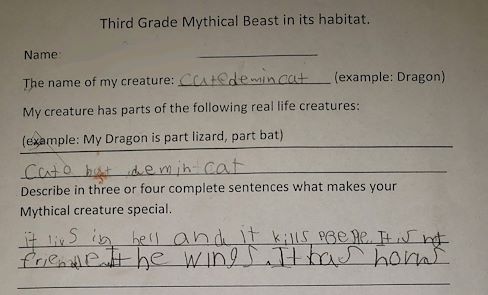 Third Grade Mythical Beast in its habitat.
Name:
The name of my creature: Cutedemincat (example: Dragon)
My creature has parts of the following real life creatures:
(example: My Dragon is part lizard, part bat)
Cute but demin cat
Describe in three or four complete sentences what makes your
Mythical creature special.
it livs in hell and it kills It is not
It he wings. It has horns